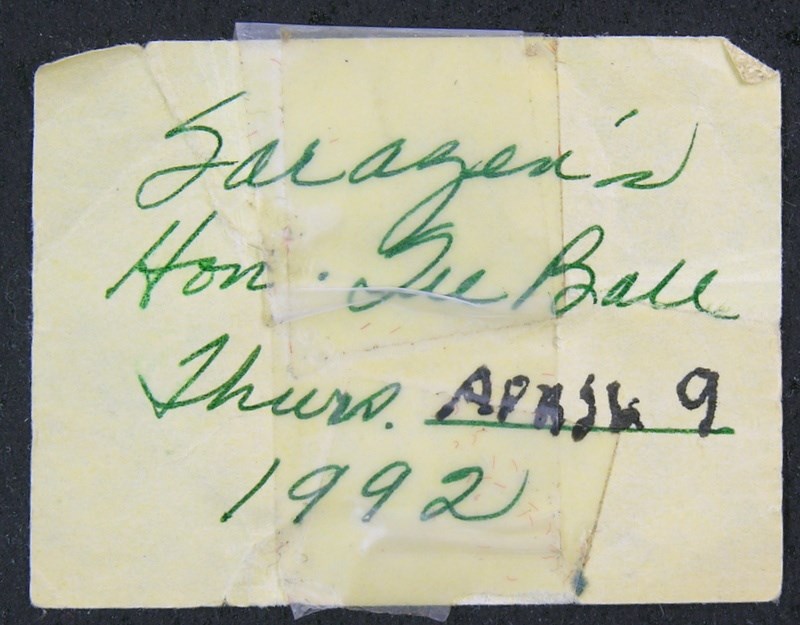 Sarazen's
Hon. Tee Ball
Thurs. APRIL 9
1992